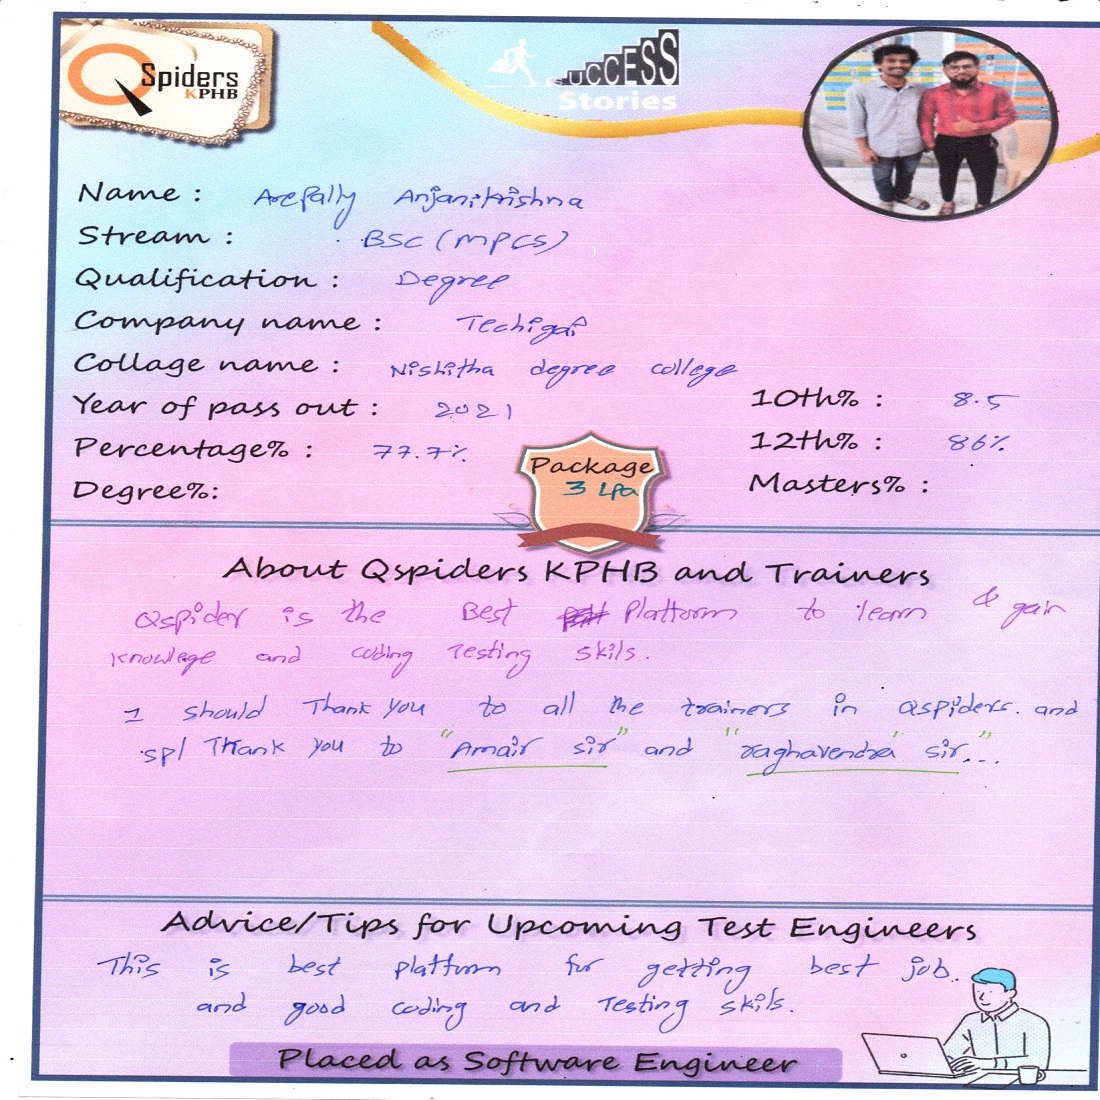 QSpiders
KPHB
SUCCESS
Stories
Name : Arepally Anjanikrishna
Stream : BSC (MPCS)
Qualification : Degree
Company name : Techigai
Collage name : Nishitha degree college
Year of pass out : 2021
10th% : 8.5
Percentage% : 77.7%
12th% : 86%
Degree%:
Masters% :
Package
3 Lpa
About Qspiders KPHB and Trainers
Qspider is the Best Platform to learn & gain
knowlege and coding Testing skils.
I should Thank you to all the trainers in Qspiders. and
spl Thank you to "Amair sir" and "raghavendra" sir..."
Advice/Tips for Upcoming Test Engineers
This is best platform for getting best job.
and good coding and Testing skils.
Placed as Software Engineer